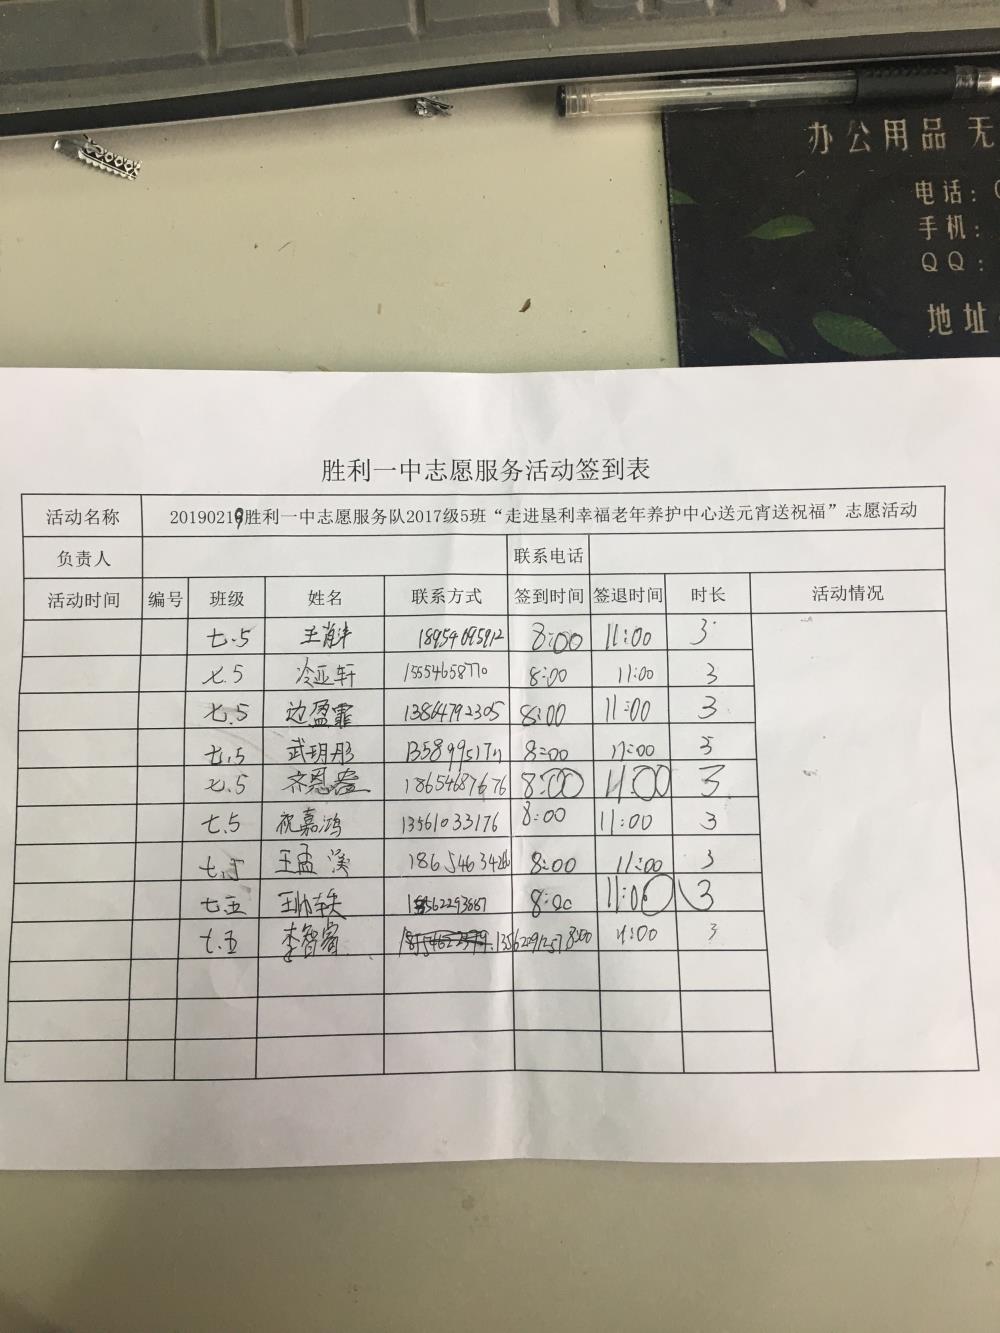 办公用品 无
电话：
手机：
QQ：
地址
胜利一中志愿服务活动签到表
活动名称 20190219胜利一中志愿服务队2017级5班“走进垦利幸福老年养护中心送元宵送祝福”志愿活动
负责人 联系电话
活动时间 编号 班级 姓名 联系方式 签到时间 签退时间 时长 活动情况
七.5 18954095912 8:00 11:00 3
七.5 冷亚轩 15554658770 8:00 11:00 3
七.5 边盈霏 13864792305 8:00 11:00 3
七.5 武玥彤 8:00 11:00 3
七.5 齐恩 18654687676 8:00 11:00 3
七.5 祝嘉鸿 13561033176 8:00 11:00 3
七.5 王孟 8:00 11:00 3
七.五 8:00 11:00 3
七.五 李智睿 13562291257 8:00 11:00 3